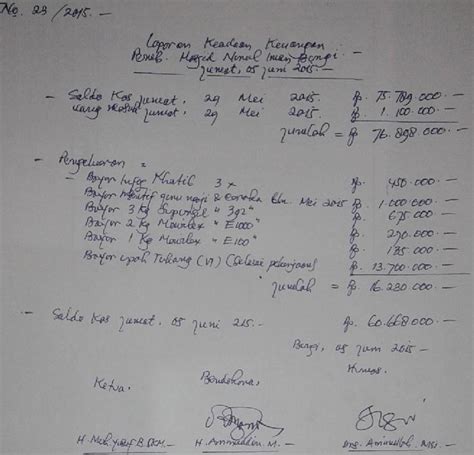 No. 23 /2015. -
Laporan Keadaan Keuangan
Pemb. Masjid Nurul Iman Bangi
Jumat, 05 Juni 2015. -
- Saldo Kas Jumat, 29 Mei 2015. Rp. 75.789.000. -
uang masuk Jumat, 29 Mei 2015. Rp. 1.100.000. -
Jumlah = Rp. 76.898.000. -
- Pengeluaran =
- Bayar Khatib 3 x Rp. 450.000. -
Bayar guru ngaji & Mei 2015 Rp. 1.000.000. -
Bayar 3 Kg " 392 " 675.000. -
Bayar 2 Kg Mowilex " E1000 " Rp. 270.000. -
Bayar 1 Kg Mowilex " E100 " Rp. 135.000. -
Bayar upah Tukang (VI) (Selesai pekerjaan) Rp. 13.700.000. -
Jumlah = Rp. 16.230.000. -
- Saldo Kas Jumat, 05 Juni 215. - Rp. 60.668.000. -
05 Juni 2015. -
Ketua, Bendahara, Humas.
H. Aminuddin. M. -